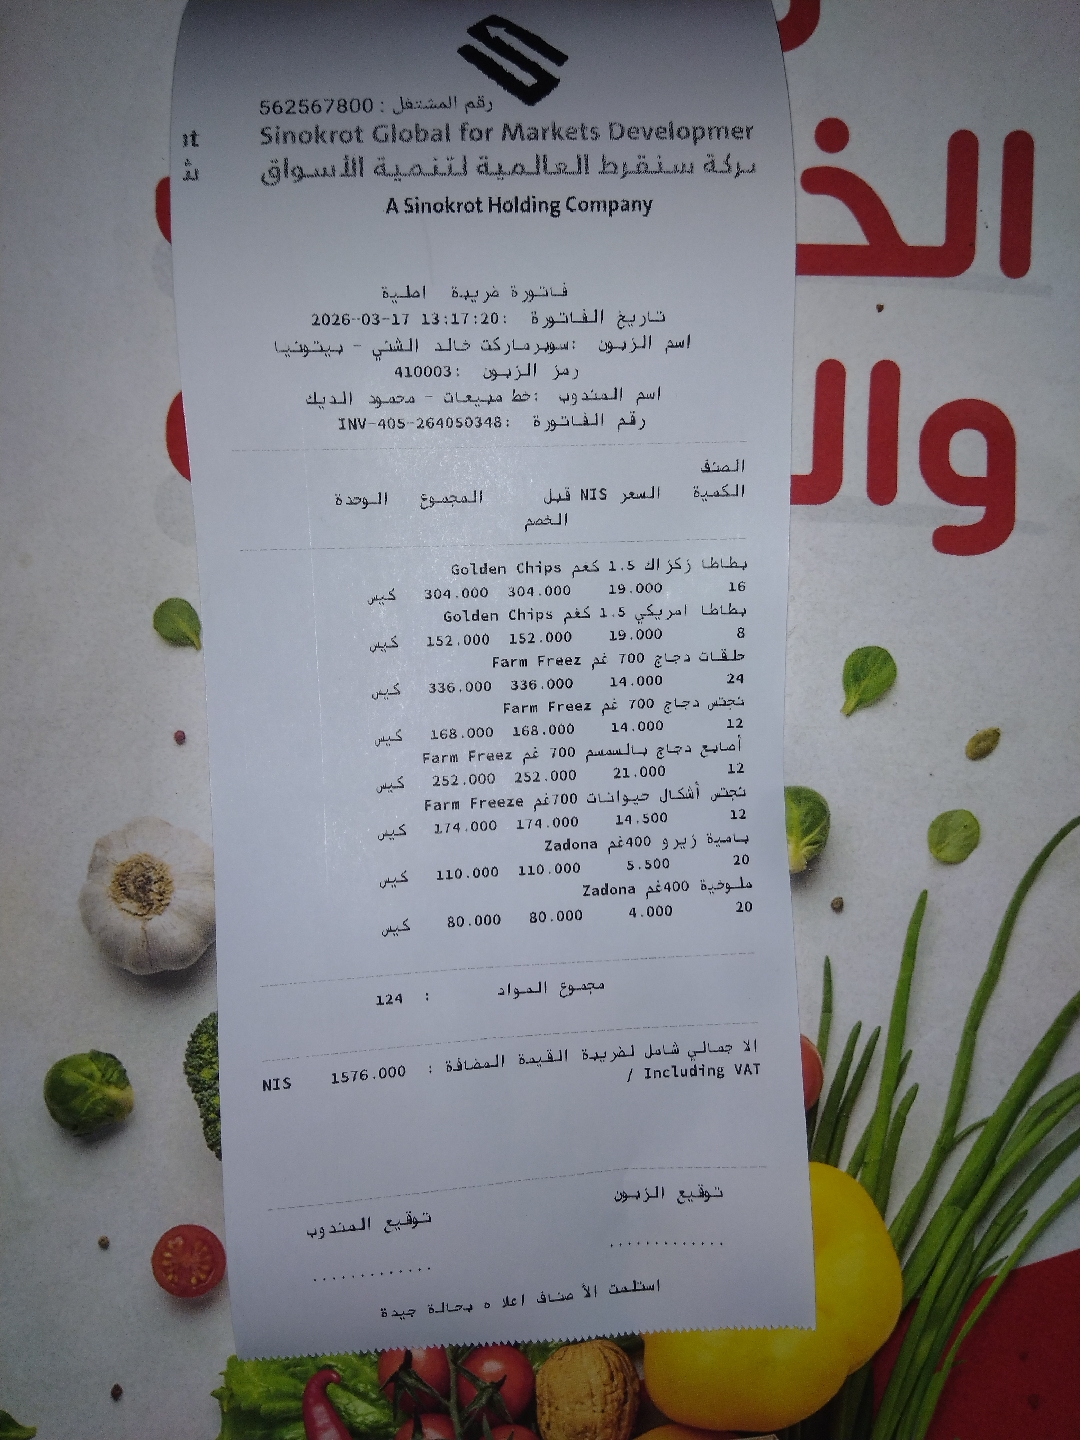 رقم المشتغل : 562567800
Sinokrot Global for Markets Developmer
ركة سنقرط العالمية لتنمية الأسواق
A Sinokrot Holding Company
فاتورة ضريبة اصلية
تاريخ الفاتورة :2026-03-17 13:17:20
اسم الزبون :سوبرماركت خالد الشني - بيتونيا
رمز الزبون :410003
اسم المندوب :خط مبيعات - محمود الديك
رقم الفاتورة :INV-405-264050348
الصنف
الكمية السعر NIS قبل المجموع الوحدة
الخصم
بطاطا زكزاك 1.5 كغم Golden Chips
16 19.000 304.000 304.000 كيس
بطاطا امريكي 1.5 كغم Golden Chips
8 19.000 152.000 152.000 كيس
حلقات دجاج 700 غم Farm Freez
24 14.000 336.000 336.000 كيس
نجتس دجاج 700 غم Farm Freez
12 14.000 168.000 168.000 كيس
أصابع دجاج بالسمسم 700 غم Farm Freez
12 21.000 252.000 252.000 كيس
نجتس أشكال حيوانات 700غم Farm Freeze
12 14.500 174.000 174.000 كيس
بامية زيرو 400غم Zadona
20 5.500 110.000 110.000 كيس
ملوخية 400غم Zadona
20 4.000 80.000 80.000 كيس
مجموع المواد : 124
الا جمالي شامل لضريبة القيمة المضافة : 1576.000 NIS
/ Including VAT
توقيع الزبون
توقيع المندوب
.............
.............
استلمت الأ صناف اعلا ه بحالة جيدة